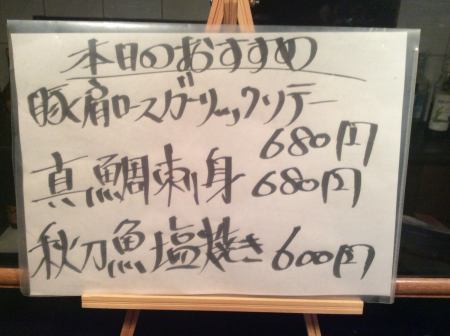 本日のおすすめ
豚肩ロースガーリックソテー
680円
真鯛刺身 680円
秋刀魚塩焼き 600円